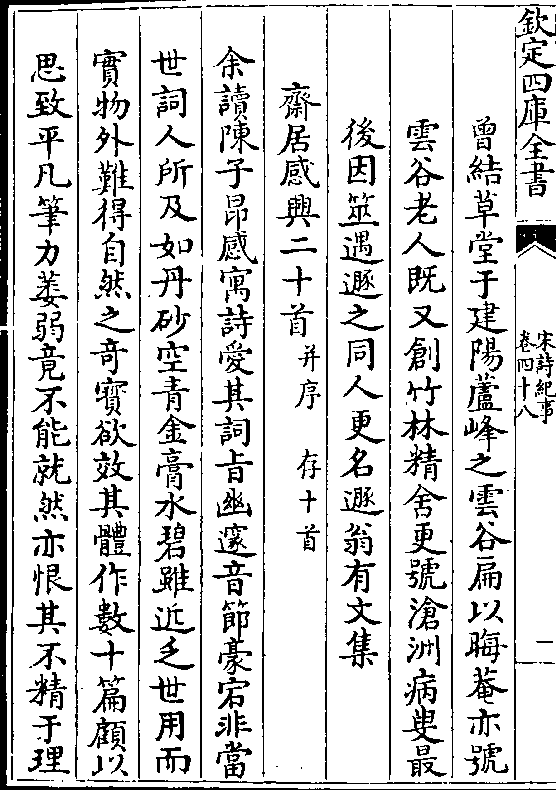 欽定四庫全書
宋詩紀事
卷四十八
一
曾結草堂于建陽蘆峰之雲谷扁以晦菴亦號
雲谷老人既又創竹林精舍更號滄洲病叟最
後因筮遇遯之同人更名遯翁有文集
齋居感興二十首并序 存十首
余讀陳子昂感寓詩愛其詞旨幽邃音節豪宕非當
世詞人所及如丹砂空青金膏水碧雖近乏世用而
實物外難得自然之奇寶欲效其體作數十篇顧以
思致平凡筆力萎弱竟不能就然亦恨其不精于理